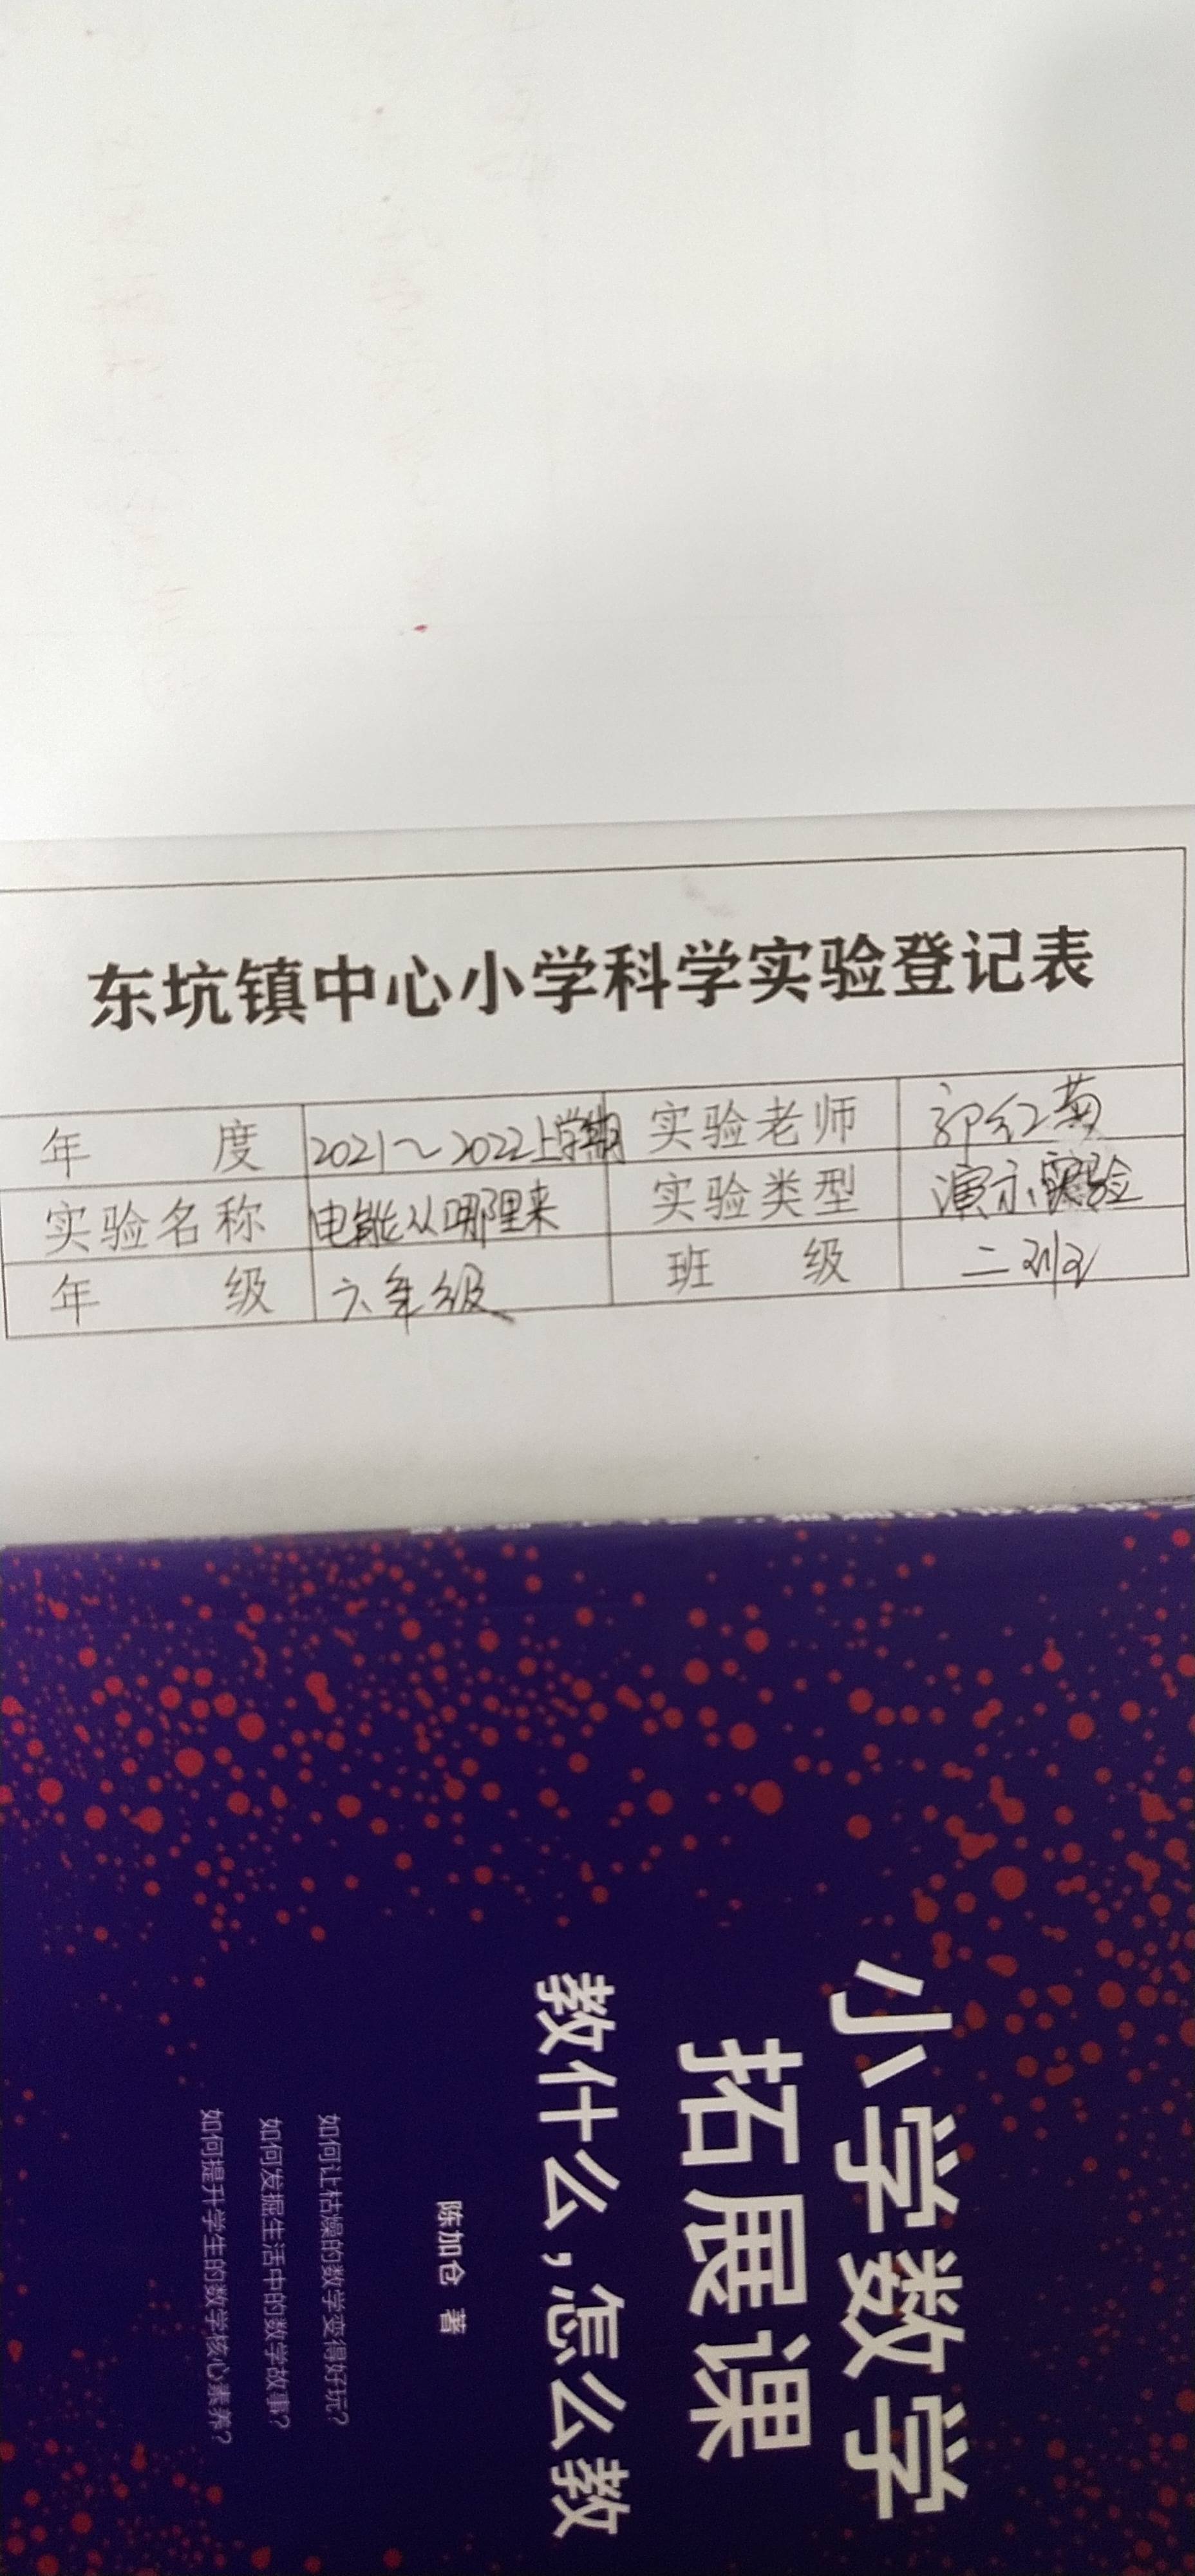 东坑镇中心小学科学实验登记表
年 度 2021~2022上学期 实验老师 郭红菊
实验名称 电能从哪里来 实验类型 演示实验
年 级 六年级 班 级 二班
小学数学
拓展课
教什么,怎么教
陈加仓 著
如何让枯燥的数学变得好玩?
如何发掘生活中的数学故事?
如何提升学生的数学核心素养?